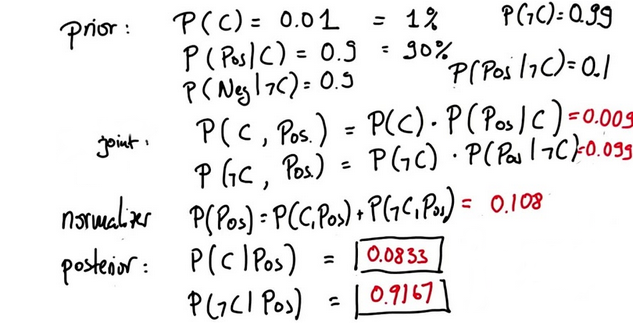 prior: P(C) = 0.01 = 1% P(¬C) = 0.99
P(Pos|C) = 0.9 = 90%
P(Neg|¬C) = 0.9 P(Pos|¬C) = 0.1
joint: P(C, Pos.) = P(C) · P(Pos|C) = 0.009
P(¬C, Pos.) = P(¬C) · P(Pos|¬C) = 0.099
normalizer P(Pos) = P(C,Pos) + P(¬C,Pos) = 0.108
posterior: P(C|Pos) = 0.0833
P(¬C|Pos) = 0.9167